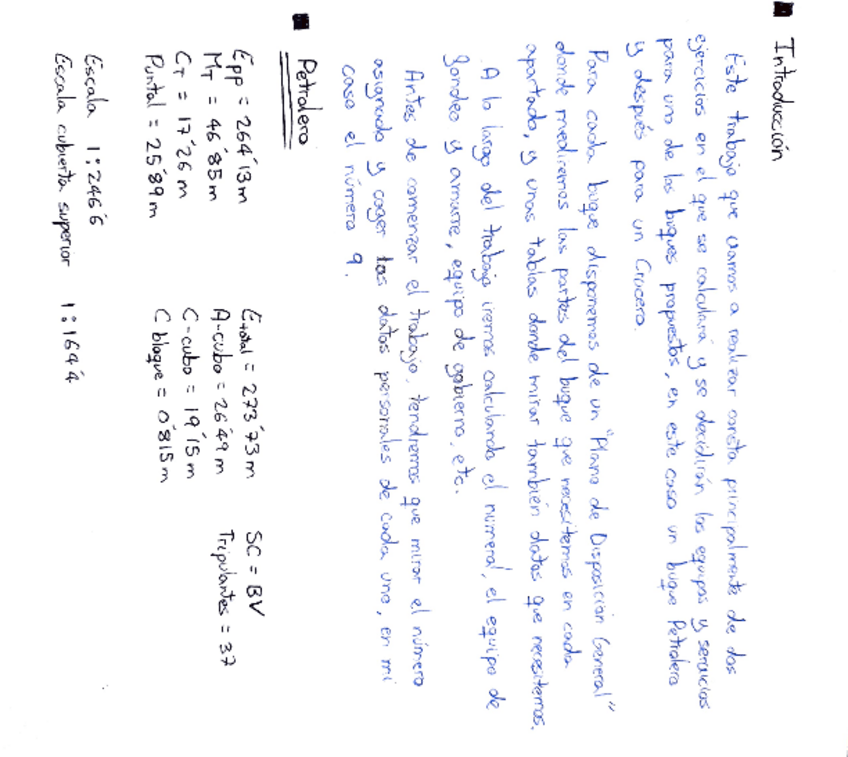 Introducción
Este trabajo que vamos a realizar consta principalmente de dos
ejercicios en el que se calculará y se decidirán los equipos y servicios
para uno de los buques propuestos, en este caso un buque Petrolero
y después para un Crucero.
Para cada buque disponemos de un "Plano de Disposición General"
donde mediremos las partes del buque que necesitemos en cada
apartado, y unas tablas donde mirar también datos que necesitemos.
A lo largo del trabajo iremos calculando el numeral, el equipo de
fondeo y amarre, equipo de gobierno, etc.
Antes de comenzar el trabajo, tendremos que mirar el número
asignado y coger los datos personales de cada uno, en mi
caso el número 9.
Petrolero
Epp = 264'13 m Etotal = 273'73 m SC = BV
MT = 46'85 m A-cubo = 26'49 m Tripulantes = 37
CT = 17'26 m C-cubo = 19'15 m
Puntal = 25'89 m C bloque = 0'815 m
Escala 1:246'6
Escala cubierta superior 1:164'4